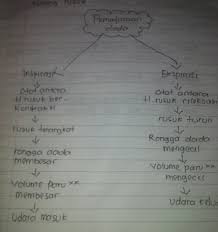 Pernafasan
dada
Inspirasi
otot antara
tl. rusuk ber-
kontraksi
rusuk terangkat
rongga dada
membesar
volume paru**
membesar
udara masuk
Ekspirasi
otot antara
tl. rusuk relaksasi
rusuk turun
Rongga dada
mengecil
volume paru**
mengecil
udara keluar